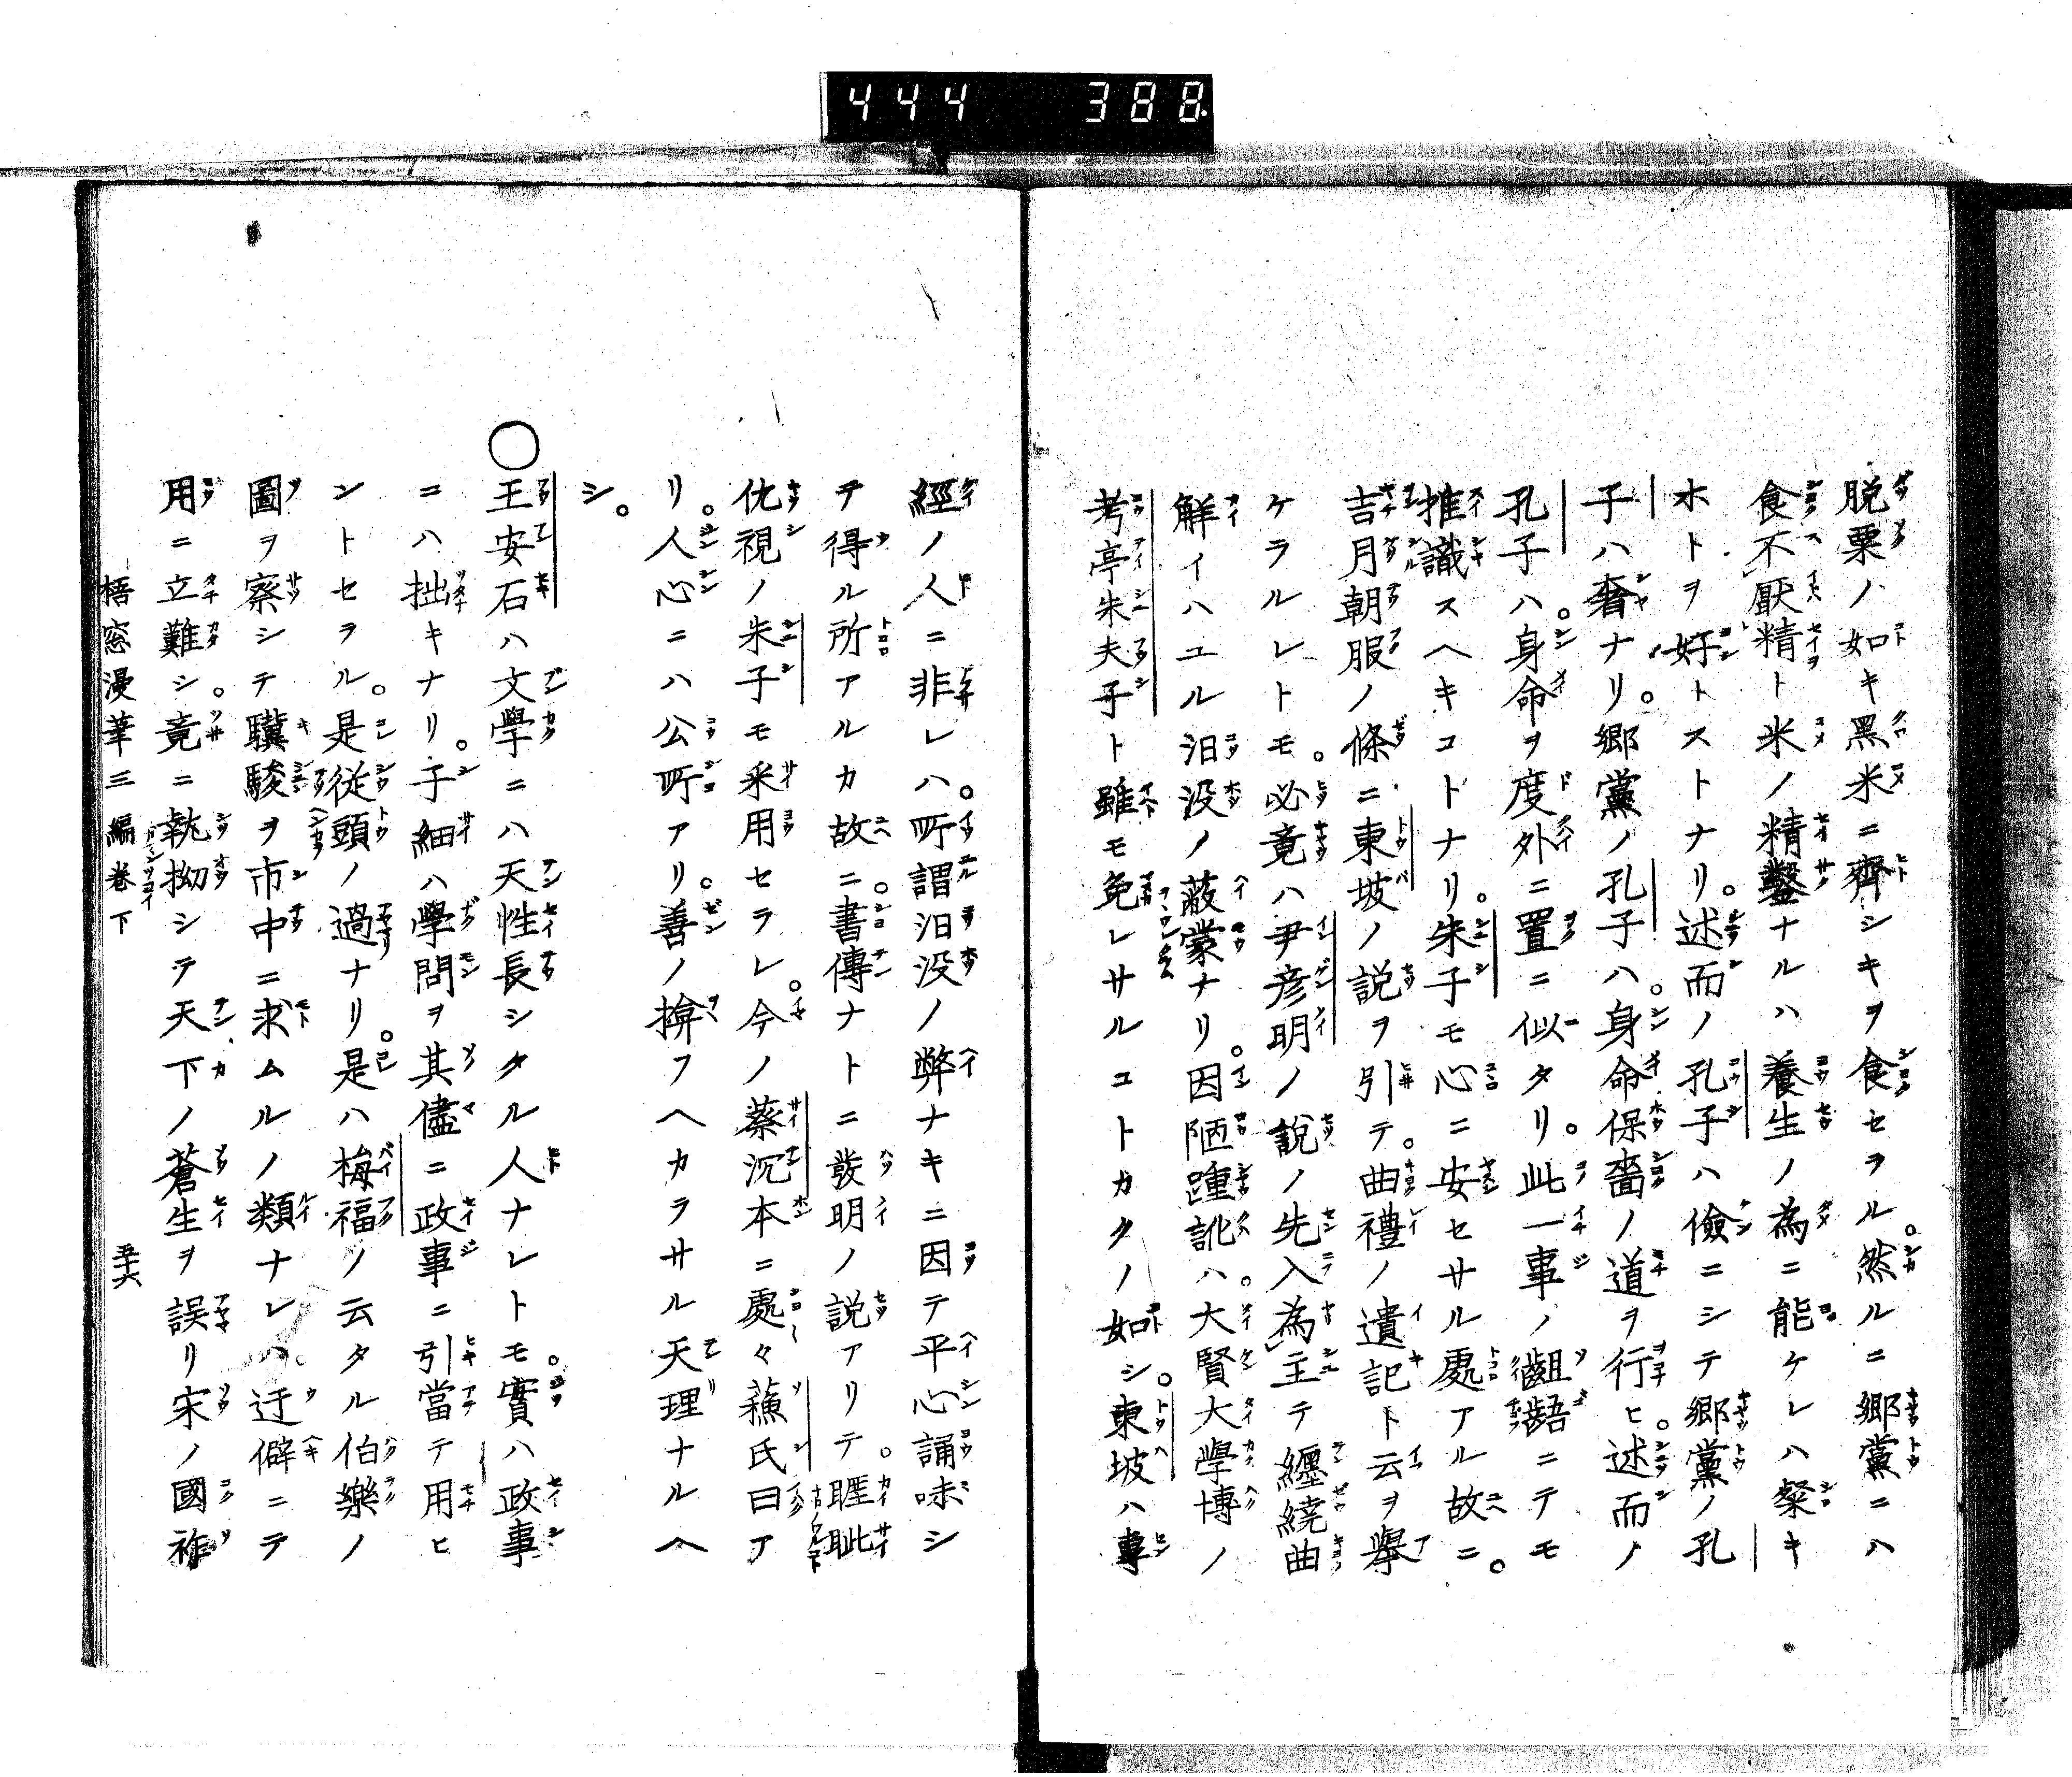 444 388
脱粟ノ如キ黒米ニ齊シキヲ食セラル。然ルニ郷黨ニハ
食不厭精ト米ノ精鑿ナルハ養生ノ為ニ能ケレハ粲キ
ホトヲ好トストナリ。述而ノ孔子ハ儉ニシテ郷黨ノ孔
子ハ奢ナリ。郷黨ノ孔子ハ。身命保嗇ノ道ヲ行ヒ。述而ノ
孔子ハ。身命ヲ度外ニ置ニ似タリ。此一事ノ齟齬ニテモ
推識スヘキコトナリ。朱子モ心ニ安セサル處アル故ニ。
吉月朝服ノ條ニ東坡ノ説ヲ引テ。曲禮ノ遺記ト云ヲ擧
ケラルレトモ。必竟ハ尹彦明ノ說ノ先入為主テ纒繞曲
解イハユル汨没ノ蔽蒙ナリ。因陋踵訛ハ。大賢大學博ノ
考亭朱夫子ト雖モ免レサルコトカタノ如シ。東坡ハ專
經ノ人ニ非レハ。所謂汨没ノ弊ナキニ因テ平心誦味シ
テ得ル所アルカ故ニ。書傳ナトニ發明ノ説アリテ。睚眦
仇視ノ朱子モ采用セラレ。今ノ蔡沉本ニ處々蘓氏曰ア
リ。人心ニハ公所アリ。善ノ揜フヘカラサル天理ナルヘ
シ。
○王安石ハ文學ニハ天性長シタル人ナレトモ。實ハ政事
ニハ拙キナリ。子細ハ學問ヲ其儘ニ政事ニ引當テ用ヒ
ントセラル。是從頭ノ過ナリ。是ハ梅福ノ云タル伯樂ノ
圖ヲ察シテ驥駿ヲ市中ニ求ムルノ類ナレハ。迂僻ニテ
用ニ立難シ。竟ニ執拗シテ天下ノ蒼生ヲ誤リ宋ノ國祚
梧窓漫筆三編卷下 五十六